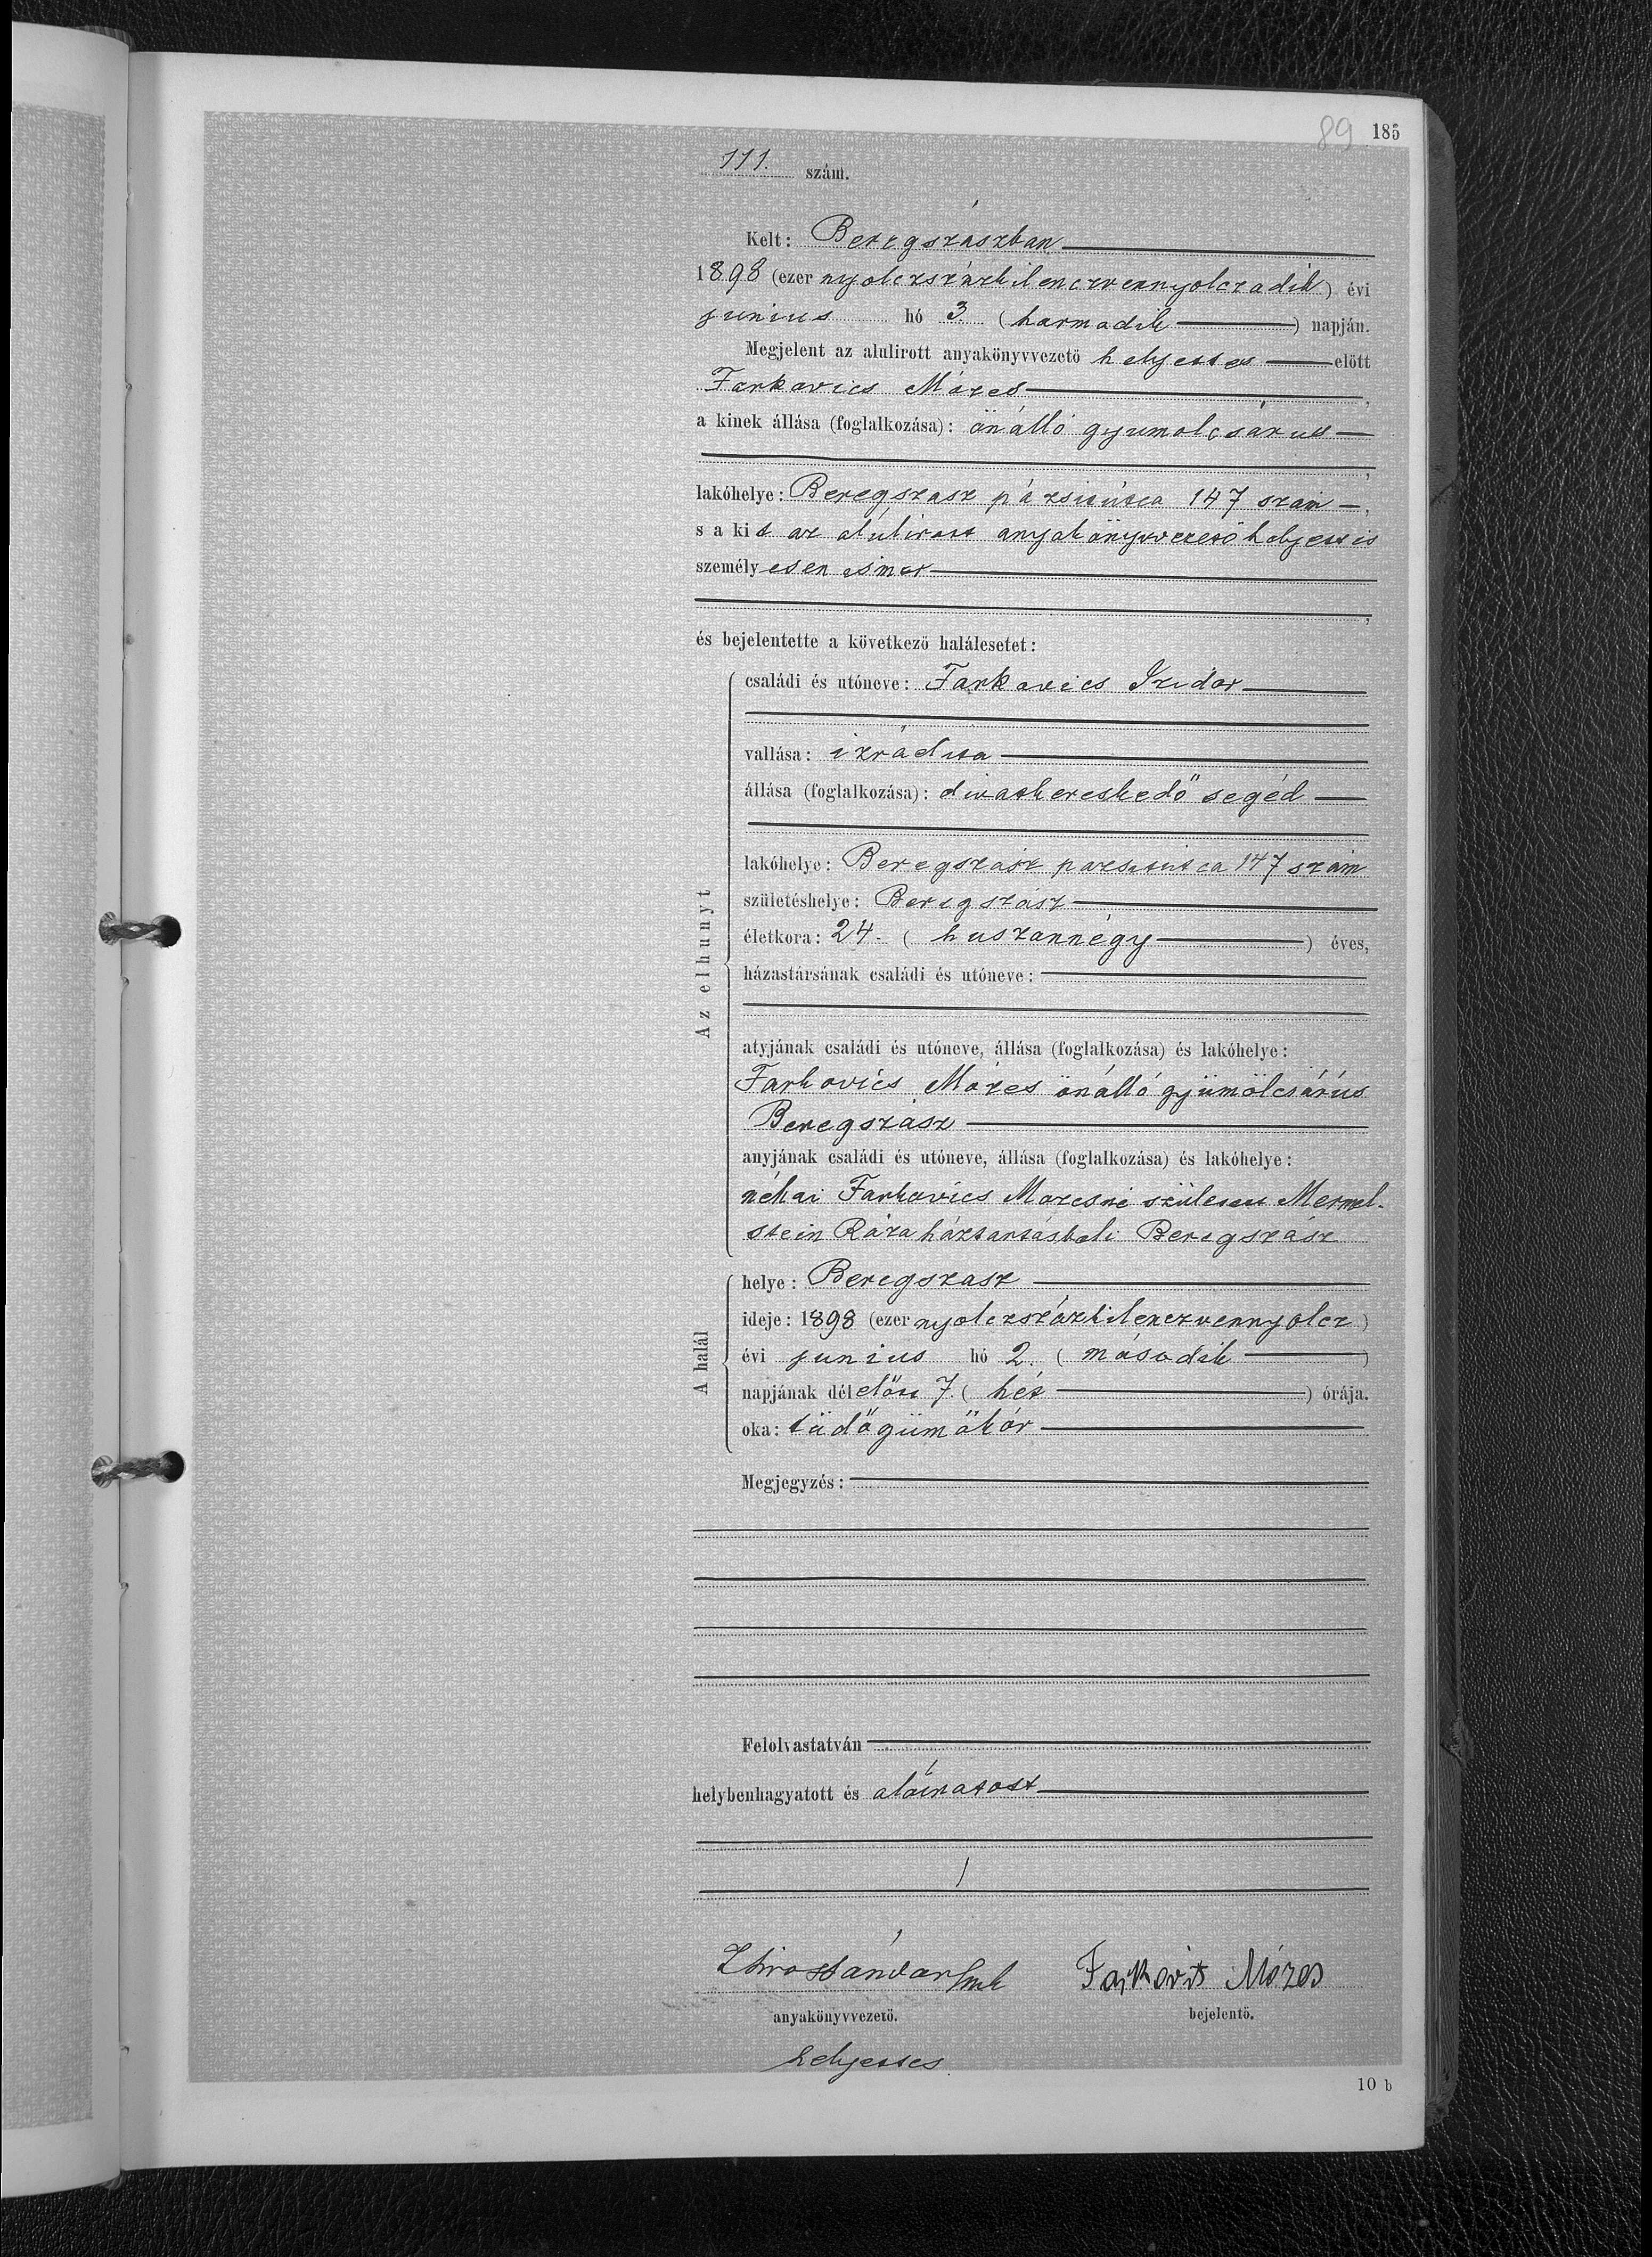 89 185
111. szám.
Kelt: Beregszászban
1898 (ezer nyolczszázkilenczvennyolczadik) évi
junius hó 3. (harmadik) napján.
Megjelent az alulirott anyakönyvvezető helyettes előtt
Farkavics Mózes,
a kinek állása (foglalkozása): önálló gyumolcsárus
,
lakóhelye: Beregszasz pázsitútca 147 szám,
s a kit az alúlirott anyakönyvvezető helyettes
személyesen ismer
,
és bejelentette a következő halálesetet:
Az elhunyt
családi és utóneve: Farkavics Izidor
vallása: izráelita
állása (foglalkozása): divatkereskedő segéd
lakóhelye: Beregszász pazsitutca 147 szám
születéshelye: Beregszász
életkora: 24. (huszannégy) éves,
házastársának családi és utóneve:
atyjának családi és utóneve, állása (foglalkozása) és lakóhelye:
Farkovics Mózes önálló gyümölcsárús
Beregszász
anyjának családi és utóneve, állása (foglalkozása) és lakóhelye:
néhai Farkavics Mozesné született Mermel-
stein Róza háztartásbeli Beregszász
A halál
helye: Beregszasz
ideje: 1898 (ezer nyolczszázkilenczvennyolcz)
évi junius hó 2. (második)
napjának délelőtt 7. (hét) órája.
oka: tüdőgümőkór
Megjegyzés:
Felolvastatván
helybenhagyatott és aláíratott
Farkovits Mózes
anyakönyvvezető. bejelentő.
helyettes
10 b